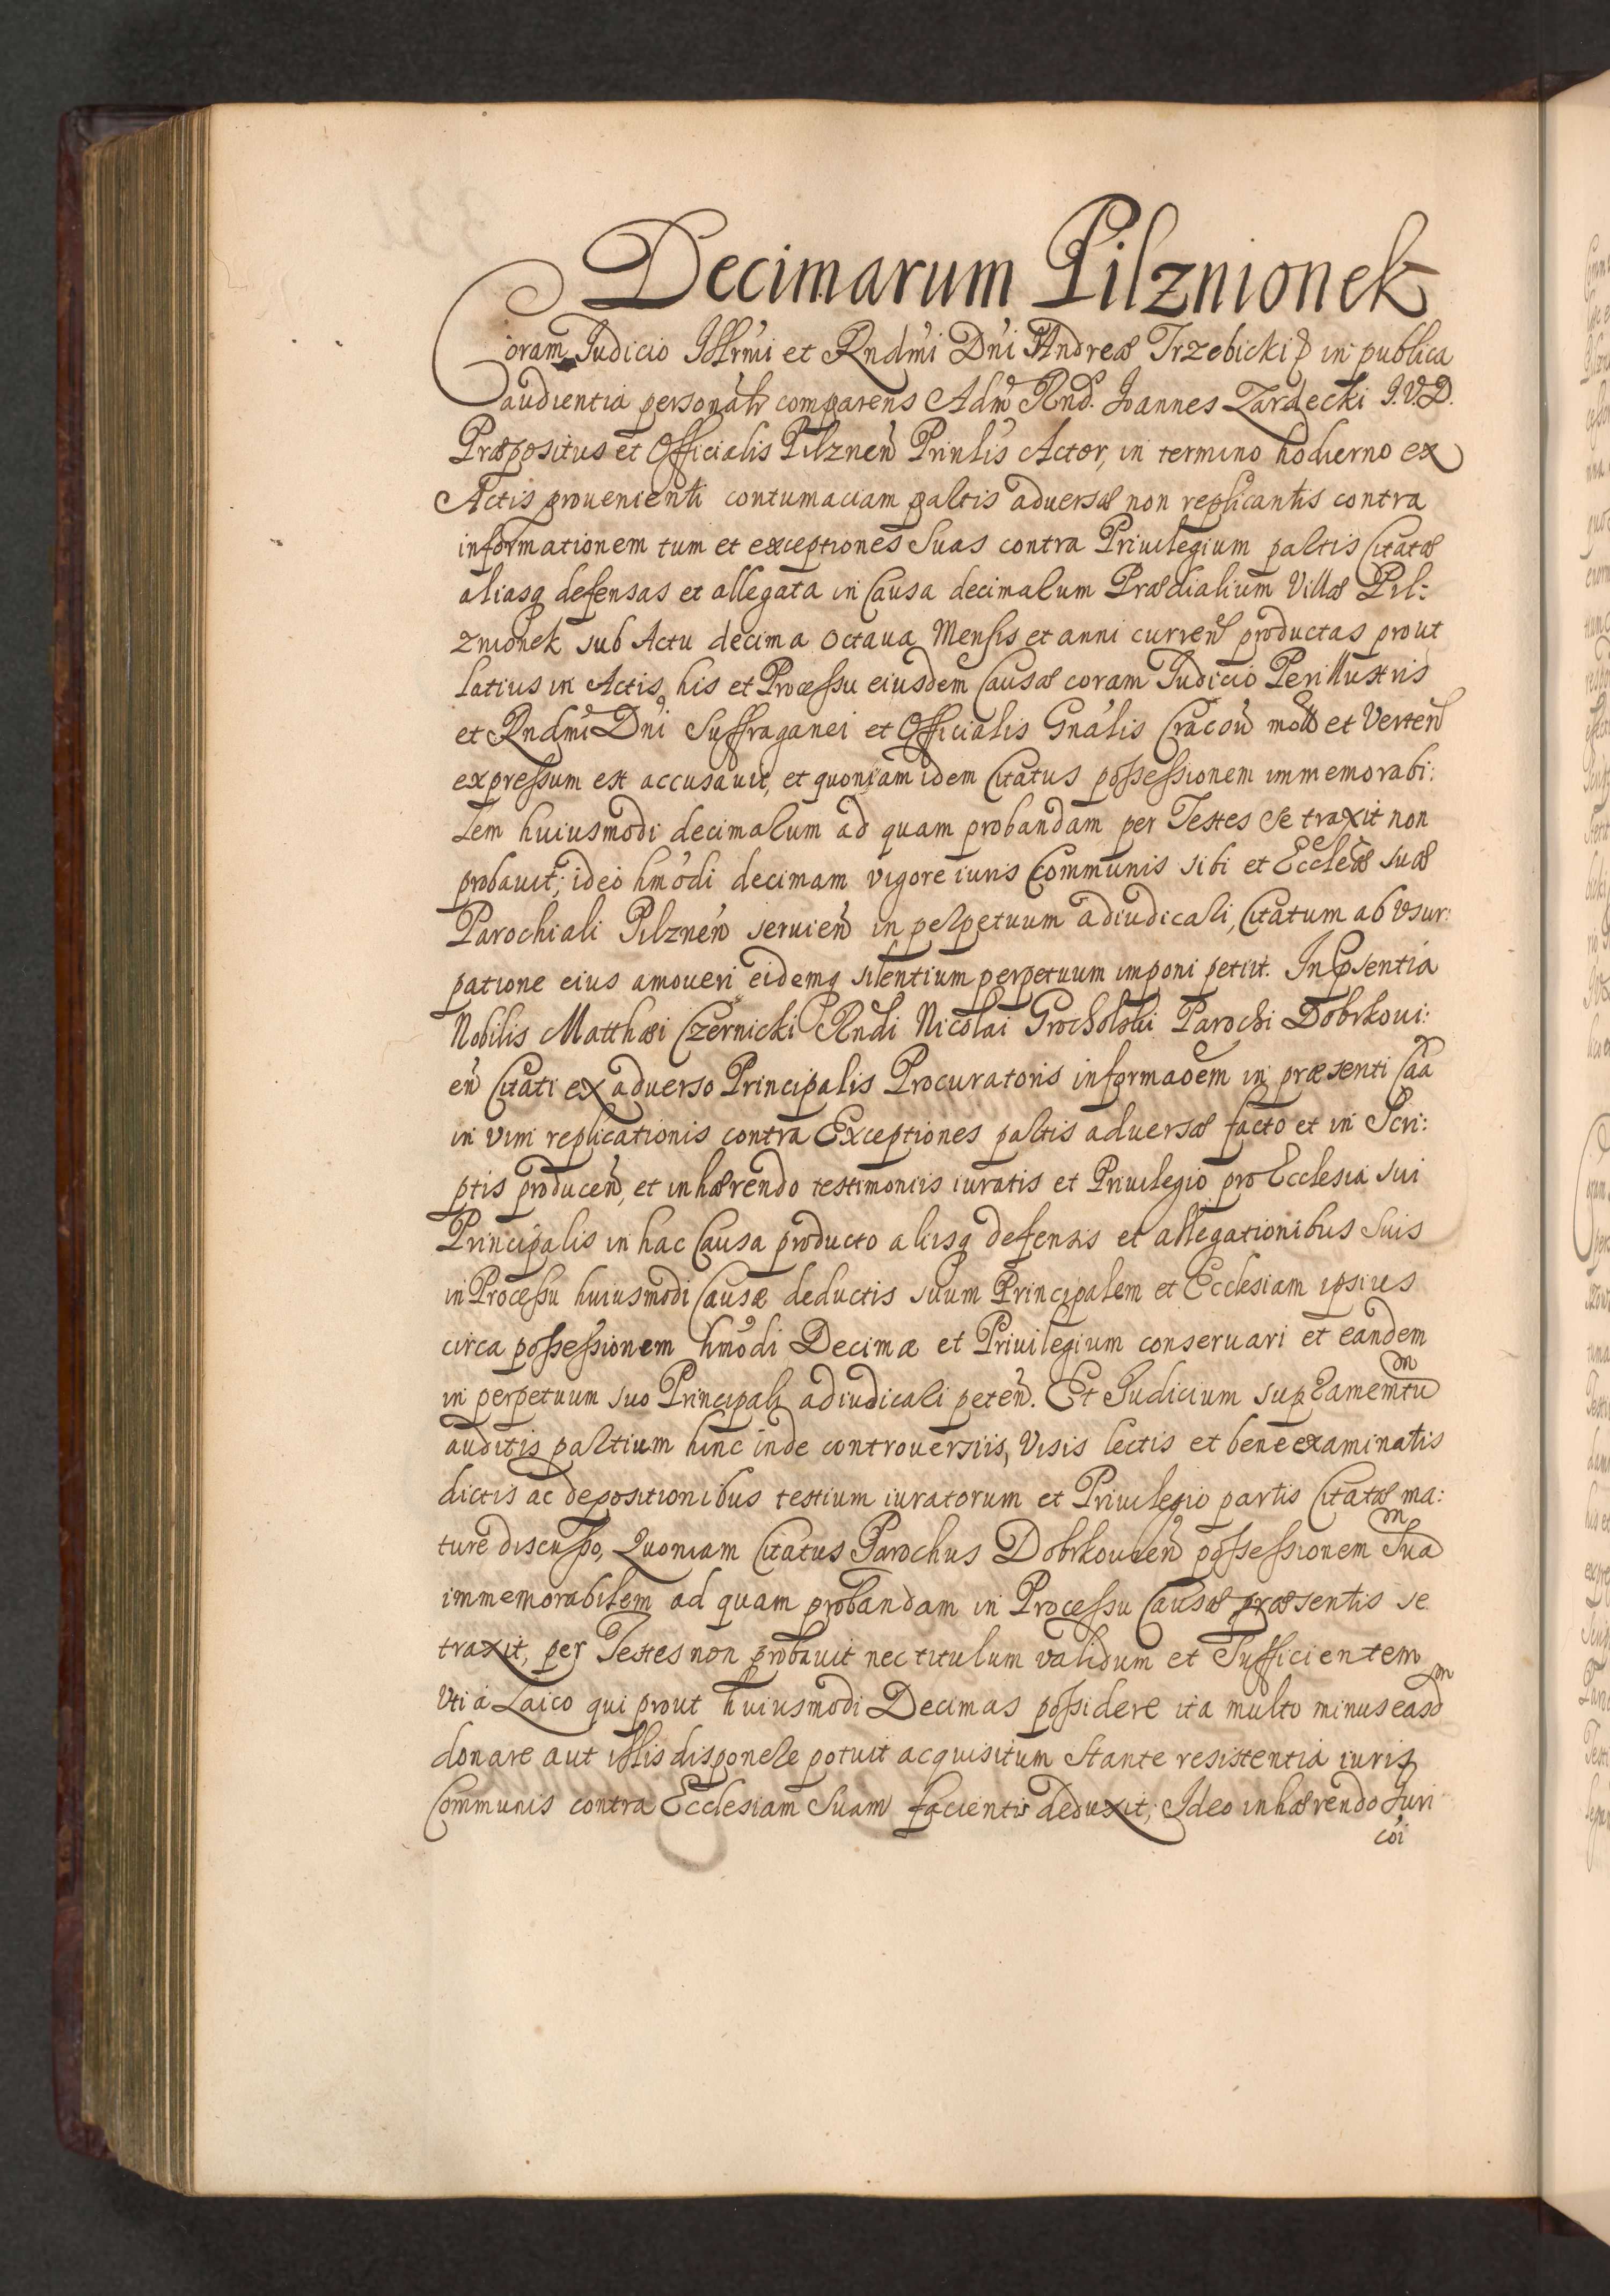 Decimarum Pilznionek
Coram Judicio Illrmi et Rndmi Dni Andreæ Trzebicki in publica
audientia personalr comparens Adm Rnd. Joannes Zardecki J.V.D.
Præpositus et Officialis Pilznen Prinlis Actor, in termino hodierno ex
Actis prouenienti contumaciam partis aduersæ non replicantis contra
informationem tum et exceptiones suas contra Priuilegium partis Citatæ
aliasq defensas et allegata in Causa decimarum Prædialium Villæ Pil:
znionek sub Actu decima octaua Mensis et anni curren productas prout
latius in Actis his et Processu eiusdem Causæ coram Judicio Perillustris
et Rndmi Dni Suffraganei et Officialis Gnalis Cracou mot et Verten
expressum est accusauit, et quoniam idem Citatus possessionem immemorabi:
lem huiusmodi decimarum ad quam probandam per Testes se traxit non
probauit; ideo hmodi decimam vigore iuris Communis sibi et Eccleæ suæ
Parochiali Pilznen seruien in perpetuum adiudicari, Citatum ab vsur:
patione eius amoueri eidemq silentium perpetuum imponi petiit. In psentia
Nobilis Matthæi Czernicki Rndi Nicolai Grocholski Parochi Dobrkoui:
en Citati ex aduerso Principalis Procuratoris informaoem in præsenti Caa
in vim replicationis contra Exceptiones partis aduersæ facto et in Scri:
ptis producen, et inhærendo testimoniis iuratis et Priuilegio pro Ecclesia sui
Principalis in hac Causa producto aliisq defensis et allegationibus suis
in Processu huiusmodi Causæ deductis suum Principalem et Ecclesiam ipsius
circa possessionem hmodi Decimæ et Priuilegium conseruari et eandem
in perpetuum suo Principali adiudicari peten. Et Judicium
auditis partium hinc inde controuersiis, Visis lectis et bene examinatis
dictis ac depositionibus testium iuratorum et Priuilegio partis Citatæ ma:
ture discusso, Quoniam Citatus Parochus Dobrkouien possessionem suam
immemorabilem ad quam probandam in Processu Causæ præsentis se
traxit, per Testes non probauit nec titulum validum et Sufficientem
Vti a Laico qui prout huiusmodi Decimas possidere ita multo minus easdm
donare aut illis disponere potuit acquisitum Stante resistentia iuris
Communis contra Ecclesiam Suam facientis deduxit; Ideo inhærendo Juri
coi